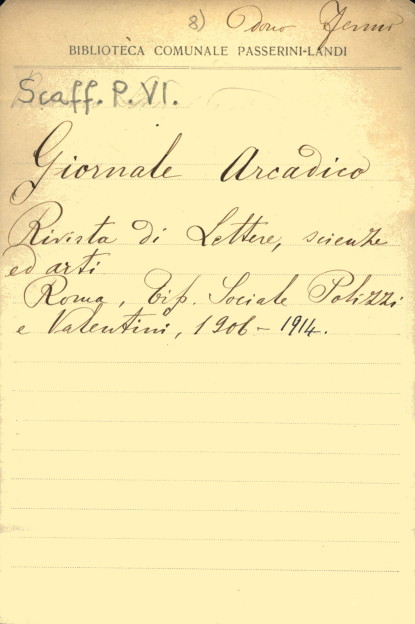 8) Dono
BIBLIOTECA COMUNALE PASSERINI-LANDI
Scaff. P. VI.
Giornale Arcadico
Rivista di Lettere, scienze
ed arti
Roma, Tip. Sociale Polizzi
e Valentini, 1906 - 1914.